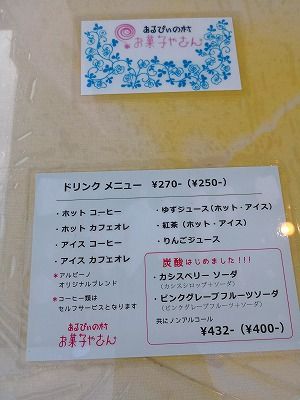 あるぴぃの村
*お菓子やさん
ドリンク メニュー ¥270-（¥250-）
・ホット コーヒー
・ホット カフェオレ
・アイス コーヒー
・アイス カフェオレ
*アルピーノ
オリジナルブレンド
*コーヒー類は
セルフサービスとなります
あるぴぃの村
お菓子やさん
・ゆずジュース（ホット・アイス）
・紅茶（ホット・アイス）
・りんごジュース
炭酸はじめました！！！
・カシスベリー ソーダ
（カシスシロップ＋ソーダ）
・ピンクグレープフルーツソーダ
（ピンクグレープフルーツ＋ソーダ）
共にノンアルコール
¥432-（¥400-）